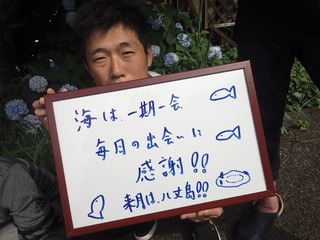 海は、一期一会
毎日の出会いに
感謝!!
来月は、八丈島!!